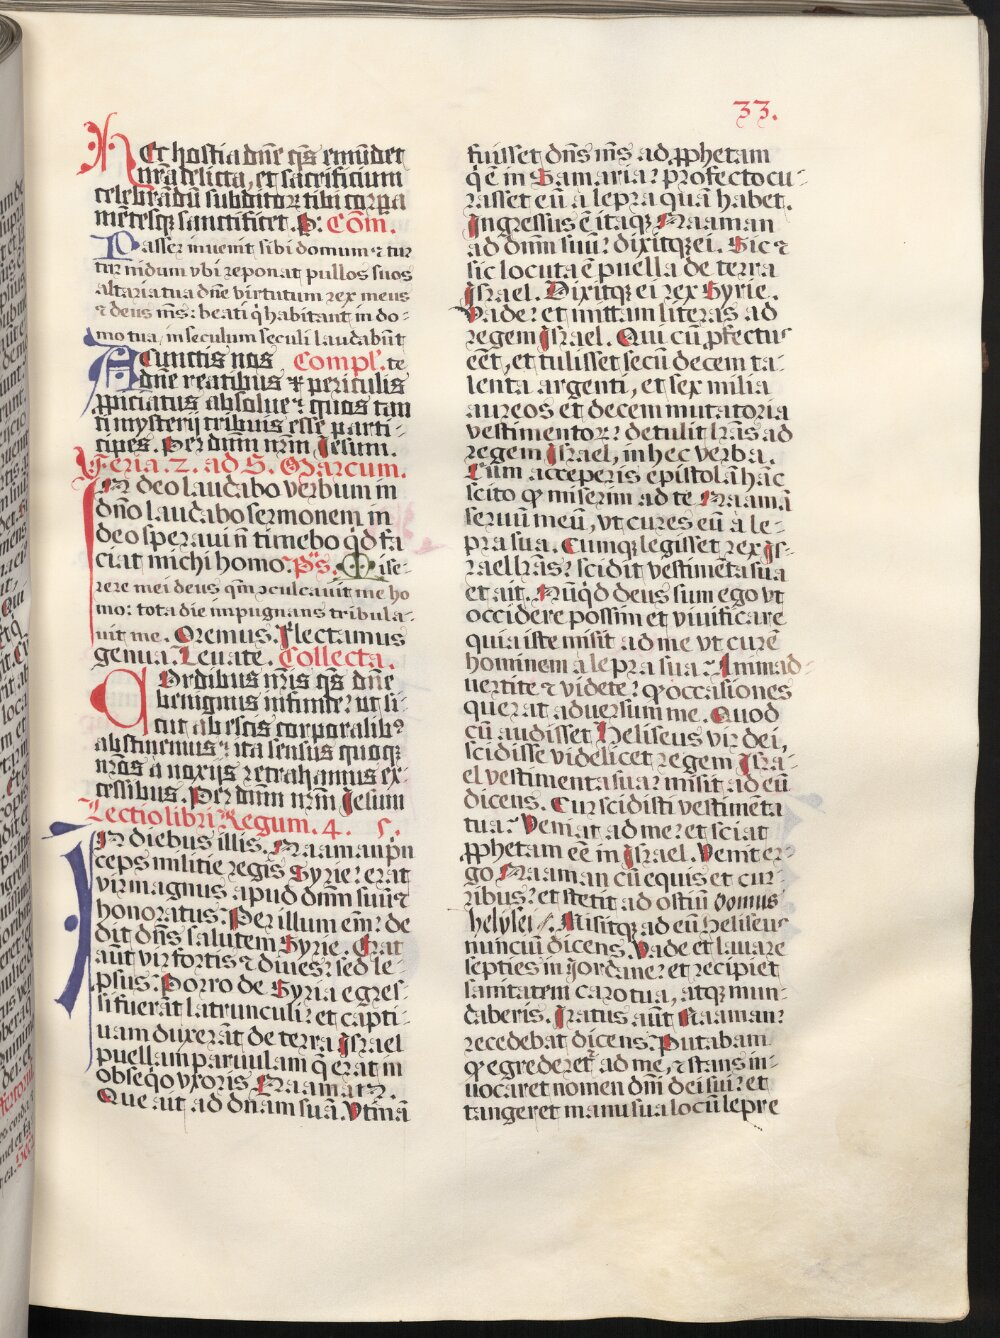 33.
Hec hostia dn̄e qs̄ emūdet
nr̄a delicta, et sacrificium
celebrādū subditoꝝ tibi corpa
mētesqꝫ sanctificet. P: Com̄.
Passer inuenit sibi domum ⁊ tur
tur nidum vbi reponat pullos suos
altaria tua dn̄e virtutum rex meus
⁊ deus ms̄: beati q̇ habitant in do-
mo tua, in seculum seculi laudabūt te
A cunctis nos Compl.
dn̄e reatibus ⁊ periculis
ꝓpiciatus absolue: quos tan
ti mysterij tribuis esse parti-
cipes. Per dn̄m nr̄m Jesum.
Feria .2. ad S. Marcum.
In deo laudabo verbum in
dn̄o laudabo sermonem in
deo speraui n̄ timebo qd̄ fa
ciat michi homo. ps. Mise-
rere mei deus qm̄ ꝯculcauit me ho
mo: tota die impugnans tribula-
uit me. Oremus. Flectamus
genua. Leuate. Collecta.
Cordibus nr̄is qs̄ dn̄e
benignus infunde: ut si-
cut ab escis corporalibꝰ
abstinemus: ita sensus quoqꝫ
nr̄os a noxijs retrahamus ex-
cessibus. Per dn̄m nr̄m Jesum
Lectio libri Regum. 4. 5.
In diebus illis. Naaman pn̄
ceps militie regis Syrie: erat
vir magnus apud dn̄m suū ⁊
honoratus. Per illum em̄: de
dit dn̄s salutem Syrie. Erat
aūt vir fortis ⁊ diues: sed le-
psus. Porro de Syria egres-
si fuerāt latrunculi: et capti-
uam duxerāt de terra Israel
puellam paruulam q̄ erat in
obseq̇o vxoris Naamān.
Que ait ad dn̄am suā. Vtinā
fuisset dn̄s ms̄ ad ꝓphetam
q̇ ē in Samaria: profecto cu-
rasset eū a lepra quā habet.
Ingressus ē itaqꝫ Naaman
ad dn̄m suū: dixitqꝫ ei. Sic ⁊
sic locuta ē puella de terra
Israel. Dixitqꝫ ei rex Syrie.
Vade: et mittam literas ad
regem Israel. Qui cū ꝓfectus
eēt, et tulisset secū decem ta-
lenta argenti, et sex milia
aureos et decem mutatoria
vestimentoꝝ: detulit lr̄as ad
regem Israel, in hec verba.
Cum acceperis epistolā hāc
scito ꝙ miserim ad te Naamā
seruū meū, vt cures eū a le-
pra sua. Cumqꝫ legisset rex Is-
rael lr̄as: scidit vestimēta sua
et ait. Nūqd̄ deus sum ego vt
occidere possim et viuificare
quia iste misit ad me vt curē
hominem a lepra sua: Animad-
uertite ⁊ videte: ꝙ occasiones
querat aduersum me. Quod
cū audisset Heliseus vir dei,
scidisse videlicet regem Isra-
el vestimenta sua: misit ad eū
dicens. Cur scidisti vestimēta
tua: Veniat ad me: et sciat
ꝓphetam eē in Israel. Venit er-
go Naaman cū equis et cur-
ribus: et stetit ad ostiū domus
helysei. Misitqꝫ ad eū Heliseus
nuncīu dicens. Vade et lauare
septies in Jordane: et recipiet
sanitatem caro tua, atqꝫ mun-
daberis. Iratus aūt Naaman:
recedebat dicens. Putabam
ꝙ egrederet᷒ ad me, ⁊ stans in-
uocaret nomen dn̄i dei sui: et
tangeret manu sua locū lepre